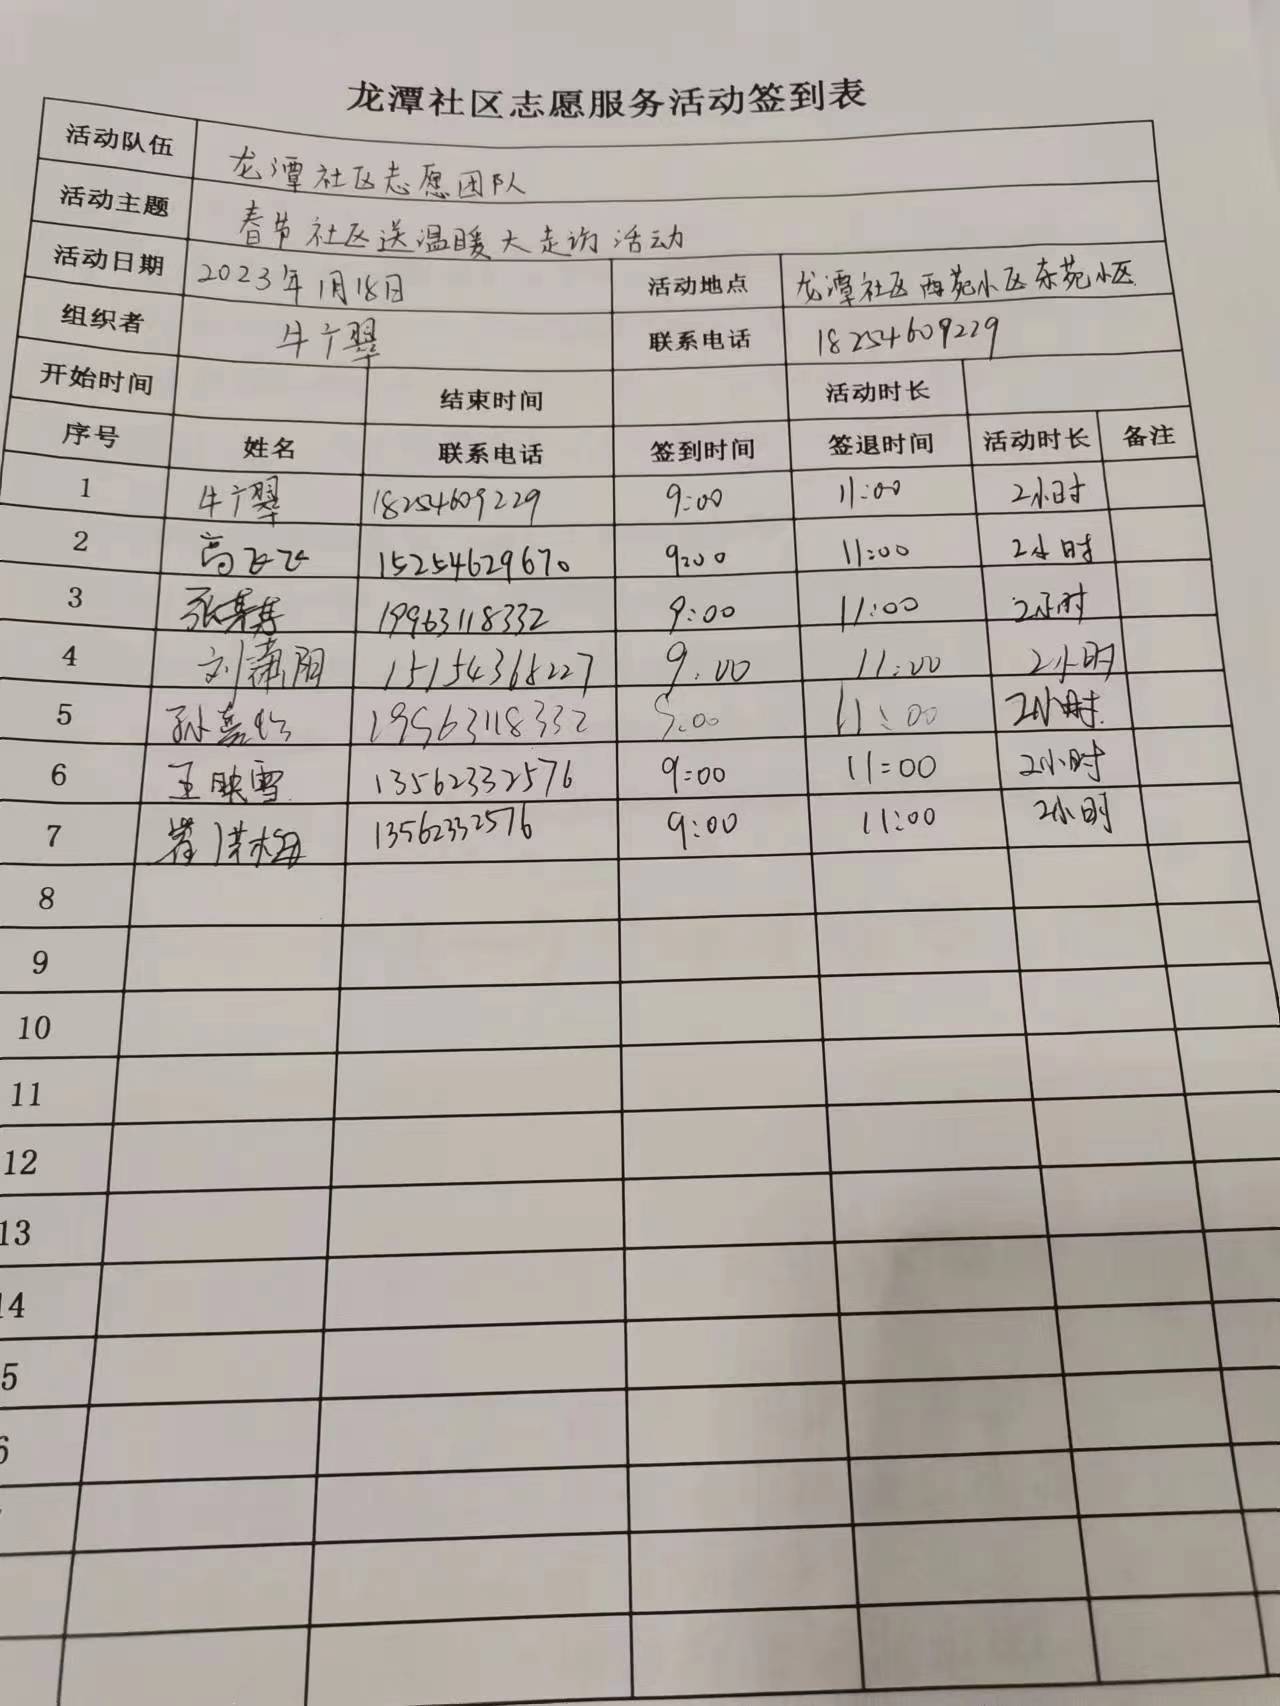 龙潭社区志愿服务活动签到表
活动队伍 龙潭社区志愿团队
活动主题 春节社区送温暖大走访活动
活动日期 2023年1月18日 活动地点 龙潭社区西苑小区东苑小区
组织者 牛广翠 联系电话 18254609229
开始时间 结束时间 活动时长
序号 姓名 联系电话 签到时间 签退时间 活动时长 备注
1 牛广翠 18254609229 9:00 11:00 2小时
2 高飞飞 15254629670 9:00 11:00 2小时
3 张 19963118332 9:00 11:00 2小时
4 刘潇阳 15154368227 9:00 11:00 2小时
5 孙嘉怡 19963118332 9:00 11:00 2小时
6 王映雪 13562332576 9:00 11:00 2小时
7 崔洪梅 13562332576 9:00 11:00 2小时
8
9
10
11
12
13
14
5
6